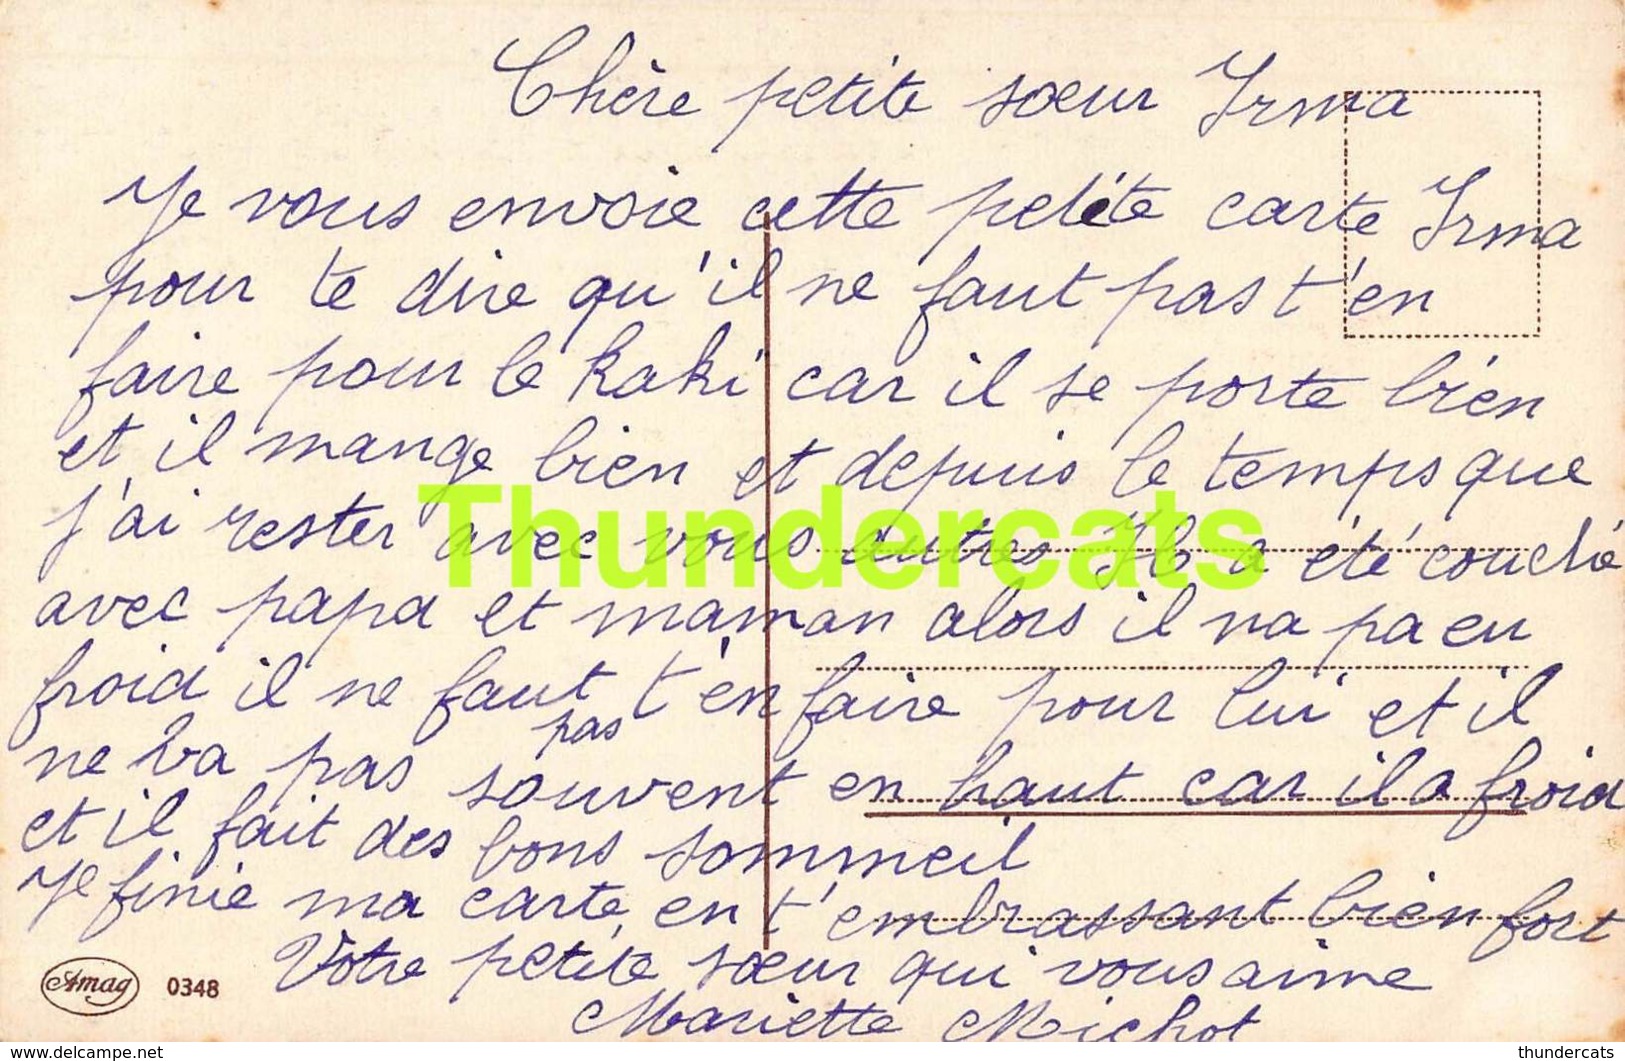 Chère petite sœur Irma
Je vous envoie cette petite carte Irma
pour te dire qu'il ne faut pas t'en
faire pour le kaki car il se porte bien
et il mange bien et depuis le temps que
j'ai rester avec vous autres Il a été couché
avec papa et maman alors il na pa eu
froid il ne faut t'en faire pour lui et il
pas
ne va pas souvent en haut car il a froid
et il fait des bons sommeil
Je finie ma carte en t'embrassant bien fort
Votre petite sœur qui vous aime
Mariette Michot
Amag 0348
Thundercats
www.delcampe.net
thundercats